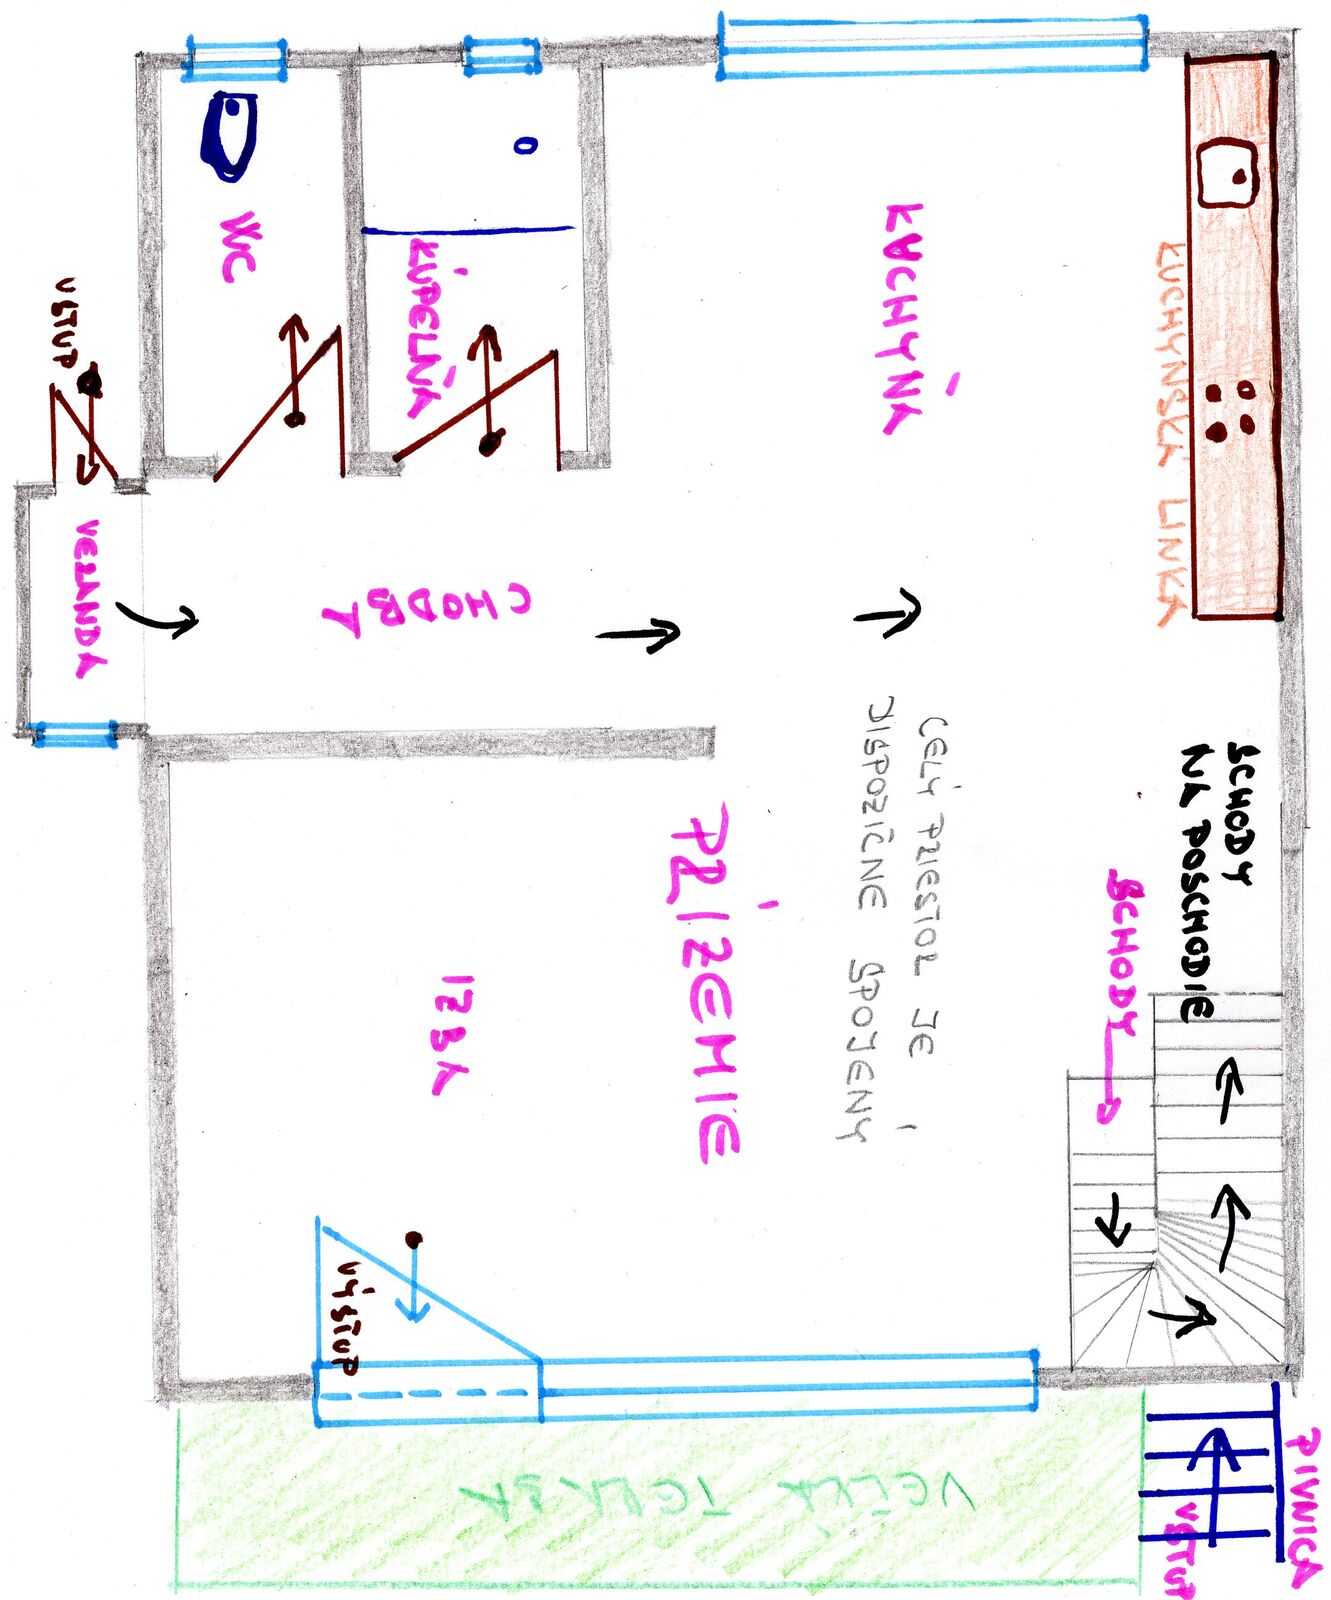 WC
KÚPEĽŇA
KUCHYŇA
KUCHYNSKÁ LINKA
VSTUP
VERANDA
CHODBA
CELÝ PRIESTOR JE
DISPOZIČNE SPOJENÝ
SCHODY
NA POSCHODIE
SCHODY
PRÍZEMIE
IZBA
VÝSTUP
VEĽKÁ TERASA
PIVNICA
VSTUP